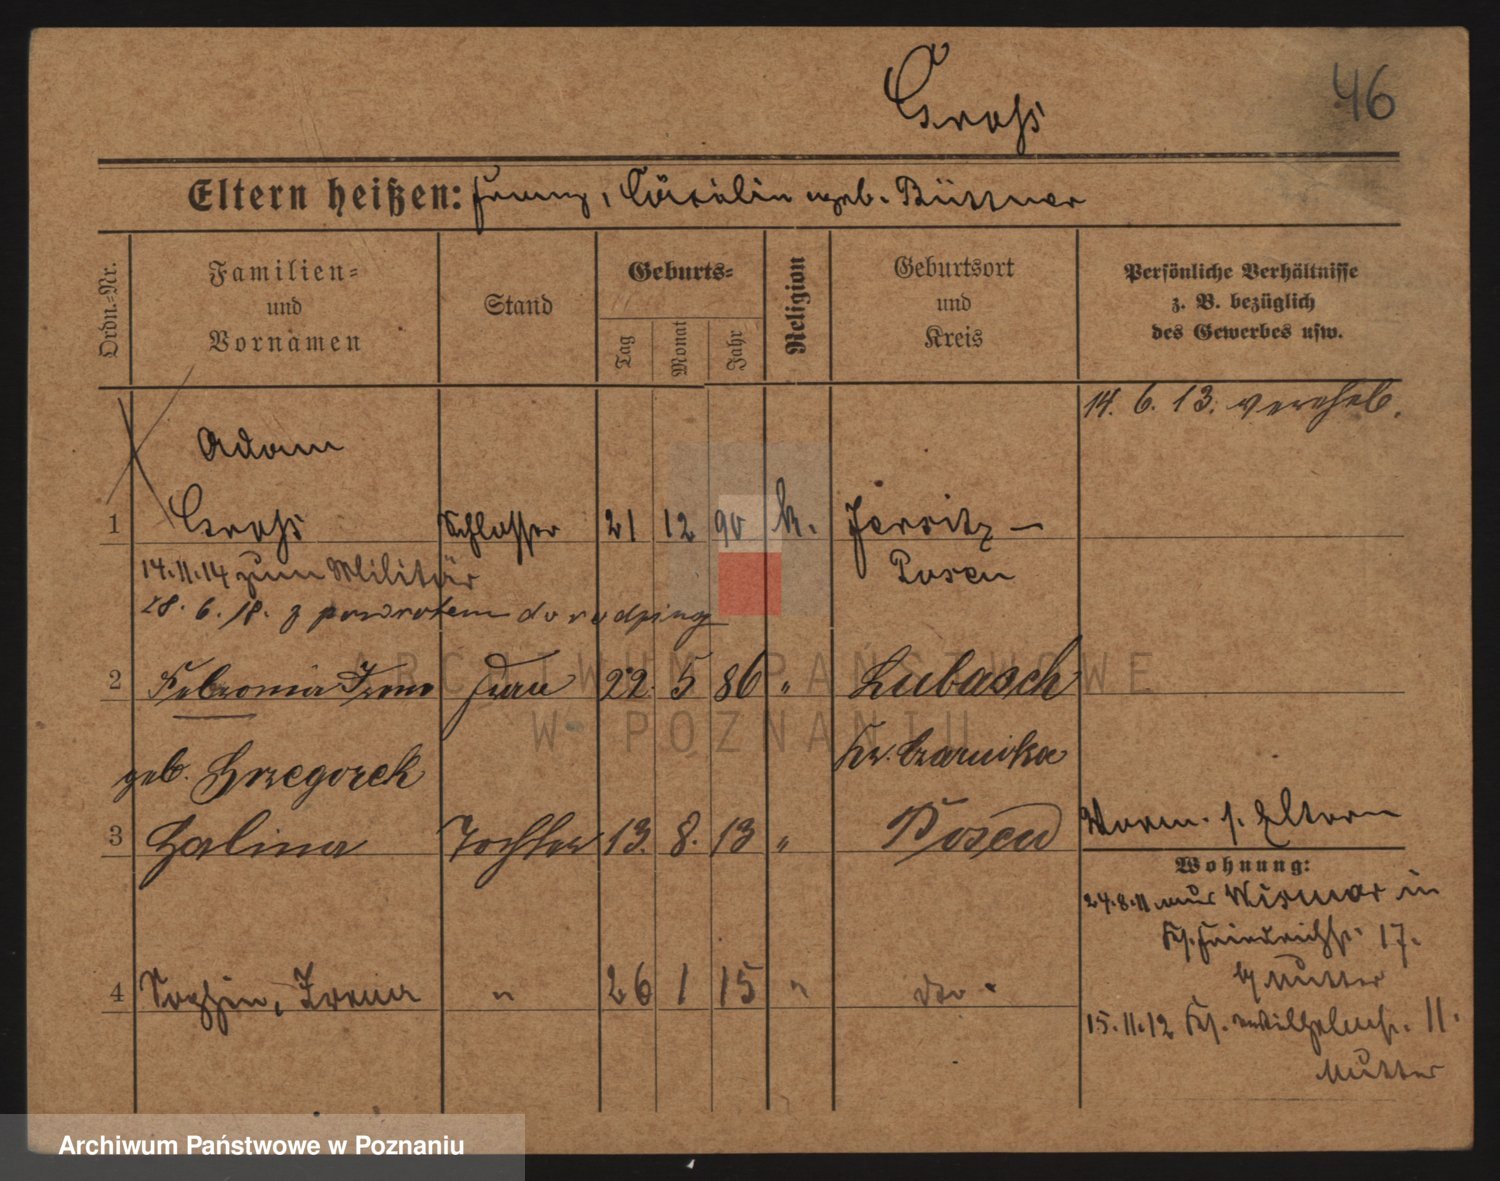 46
Groß
Eltern heißen: Franz, Cäcilie geb. Büttner
Ordn.=Nr.
Familien= und Vornamen
Stand
Geburts=
Tag
Monat
Jahr
Religion
Geburtsort und Kreis
Persönliche Verhältnisse
z. B. bezüglich
des Gewerbes usw.
14. 6. 13. vereheh.
Adam
1 Groß Schlosser 21 12 90 k. Jersitz –
Posen
14.11.14 zum Militär
28. 6. 18. z powrotem do rodziny
2 Febronia Irene Frau 22. 5 86 " Lubasch
geb. Grzegorek Kr. Czarnikau
3 Halina Tochter 13. 8. 13 " Posen
Vorm. s. Eltern
Wohnung:
24.8.11 aus Wismar in
17.
b/ Mutter
4 Sophie, Irena " 26 1 15 " do.
15.11.12 Wilhelmstr. 11.
Mutter
ARCHIWUM PAŃSTWOWE
W POZNANIU
Archiwum Państwowe w Poznaniu